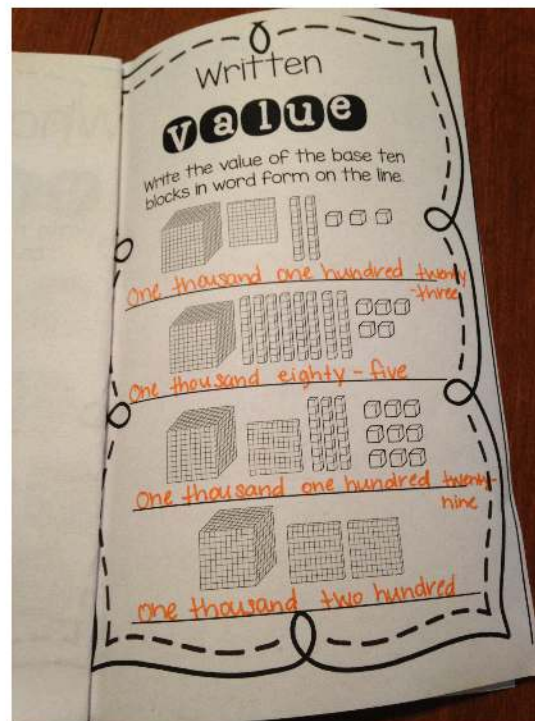 Written
value
Write the value of the base ten
blocks in word form on the line.
One thousand one hundred twenty
-three
One thousand eighty-five
One thousand one hundred twenty-
nine
One thousand two hundred